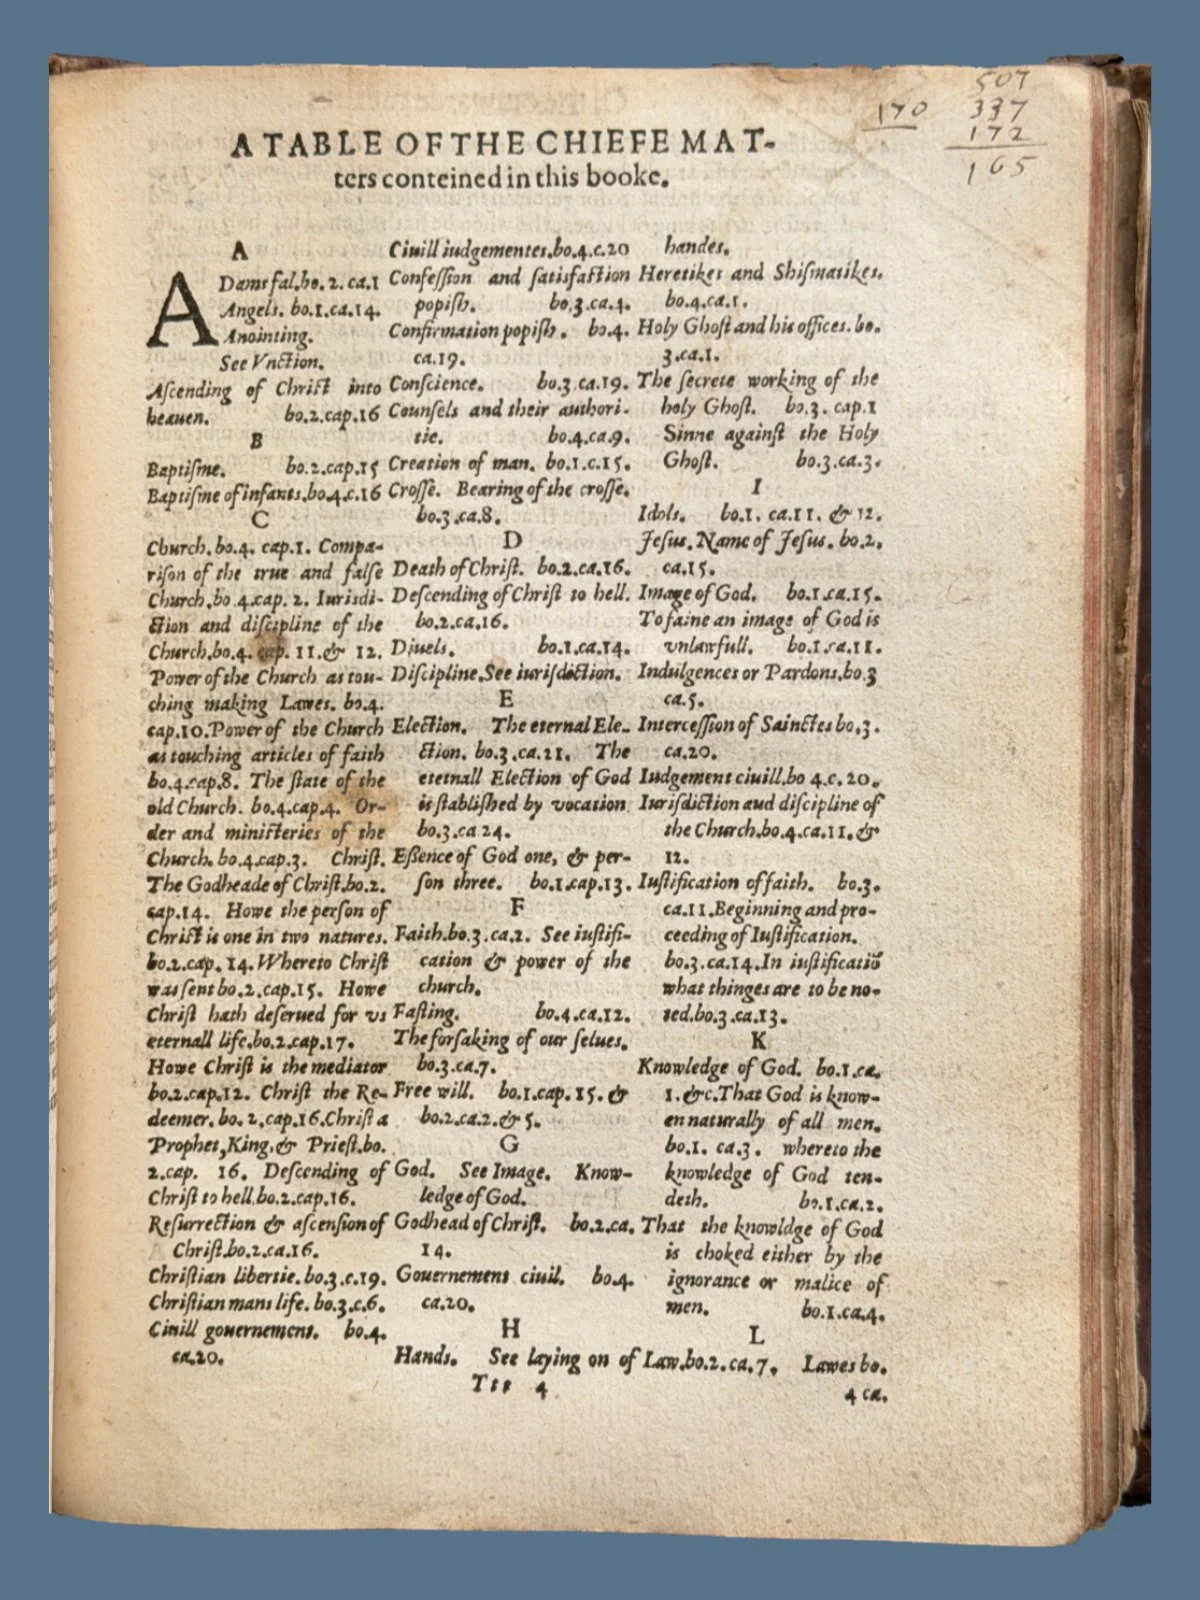 507
170 337
172
165
A TABLE OF THE CHIEFE MAT-
ters conteined in this booke.
A
ADams fal.bo. 2. ca.1
Angels. bo.1.ca.14.
Anointing.
See Vnction.
Aſcending of Chriſt into
heauen. bo.2.cap.16
B
Baptiſme. bo.2.cap.15
Baptiſme of infants.bo.4.c.16
C
Church.bo.4. cap.1. Compa-
riſon of the true and falſe
Church.bo 4.cap. 2. Iuriſdi-
ction and diſcipline of the
Church.bo.4. cap. 11.& 12.
Power of the Church as tou-
ching making Lawes. bo.4.
cap.10.Power of the Church
as touching articles of faith
bo.4.cap.8. The ſtate of the
old Church. bo.4.cap.4. Or-
der and miniſteries of the
Church. bo.4.cap.3. Chriſt.
The Godheade of Chriſt.bo.2.
cap.14. Howe the perſon of
Chriſt is one in two natures.
bo.2.cap. 14.Whereto Chriſt
was ſent bo.2.cap.15. Howe
Chriſt hath deſerued for vs
eternall life.bo.2.cap.17.
Howe Chriſt is the mediator
bo.2.cap.12. Chriſt the Re-
deemer. bo. 2.cap.16.Chriſt a
Prophet,King,& Prieſt.bo.
2.cap. 16. Deſcending of
Chriſt to hell.bo.2.cap.16.
Reſurrection & aſcenſion of
Chriſt.bo.2.ca.16.
Chriſtian libertie.bo.3.c.19.
Chriſtian mans life. bo.3.c.6.
Ciuill gouernement. bo.4.
ca.20.
Ciuill iudgementes.bo.4.c.20
Confeſſion and ſatisfaction
popiſh. bo.3.ca.4.
Confirmation popiſh. bo.4.
ca.19.
Conſcience. bo.3.ca.19.
Counſels and their authori-
tie. bo.4.ca.9.
Creation of man. bo.1.c.15.
Croſſe. Bearing of the croſſe.
bo.3.ca.8.
D
Death of Chriſt. bo.2.ca.16.
Deſcending of Chriſt to hell.
bo.2.ca.16.
Diuels. bo.1.ca.14.
Diſcipline.See iuriſdiction.
E
Election. The eternal Ele-
ction. bo.3.ca.21. The
eternall Election of God
is ſtabliſhed by vocation
bo.3.ca 24.
Eſſence of God one, & per-
ſon three. bo.1.cap.13.
F
Faith.bo.3.ca.2. See iuſtifi-
cation & power of the
church.
Faſting. bo.4.ca.12.
The forſaking of our ſelues.
bo.3.ca.7.
Free will. bo.1.cap.15. &
bo.2.ca.2.& 5.
G
God. See Image. Know-
ledge of God.
Godhead of Chriſt. bo.2.ca.
14.
Gouernement ciuil. bo.4.
ca.20.
H
Hands. See laying on of
Ttt 4
handes.
Heretikes and Shiſmatikes.
bo.4.ca.1.
Holy Ghoſt and his offices. bo.
3.ca.1.
The ſecrete working of the
holy Ghoſt. bo.3. cap.1
Sinne againſt the Holy
Ghoſt. bo.3.ca.3.
I
Idols. bo.1. ca.11. & 12.
Jeſus. Name of Jeſus. bo.2.
ca.15.
Image of God. bo.1.ca.15.
To faine an image of God is
vnlawfull. bo.1.ca.11.
Indulgences or Pardons.bo.3
ca.5.
Interceſſion of Sainctes bo.3.
ca.20.
Iudgement ciuill.bo 4.c. 20.
Iuriſdiction aud diſcipline of
the Church.bo.4.ca.11.&
12.
Iuſtification of faith. bo.3.
ca.11.Beginning and pro-
ceeding of Iuſtification.
bo.3.ca.14.In iuſtificatiō
what thinges are to be no-
ted.bo.3.ca.13.
K
Knowledge of God. bo.1.ca.
1.&c.That God is know-
en naturally of all men.
bo.1. ca.3. whereto the
knowledge of God ten-
deth. bo.1.ca.2.
That the knowldge of God
is choked either by the
ignorance or malice of
men. bo.1.ca.4.
L
Law.bo.2.ca.7. Lawes bo.
4 ca.